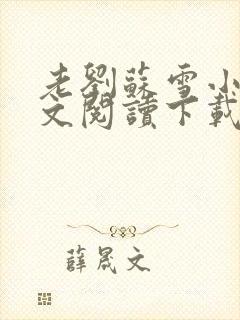 老劉蘇雪小
文閱讀下載
薛晟文